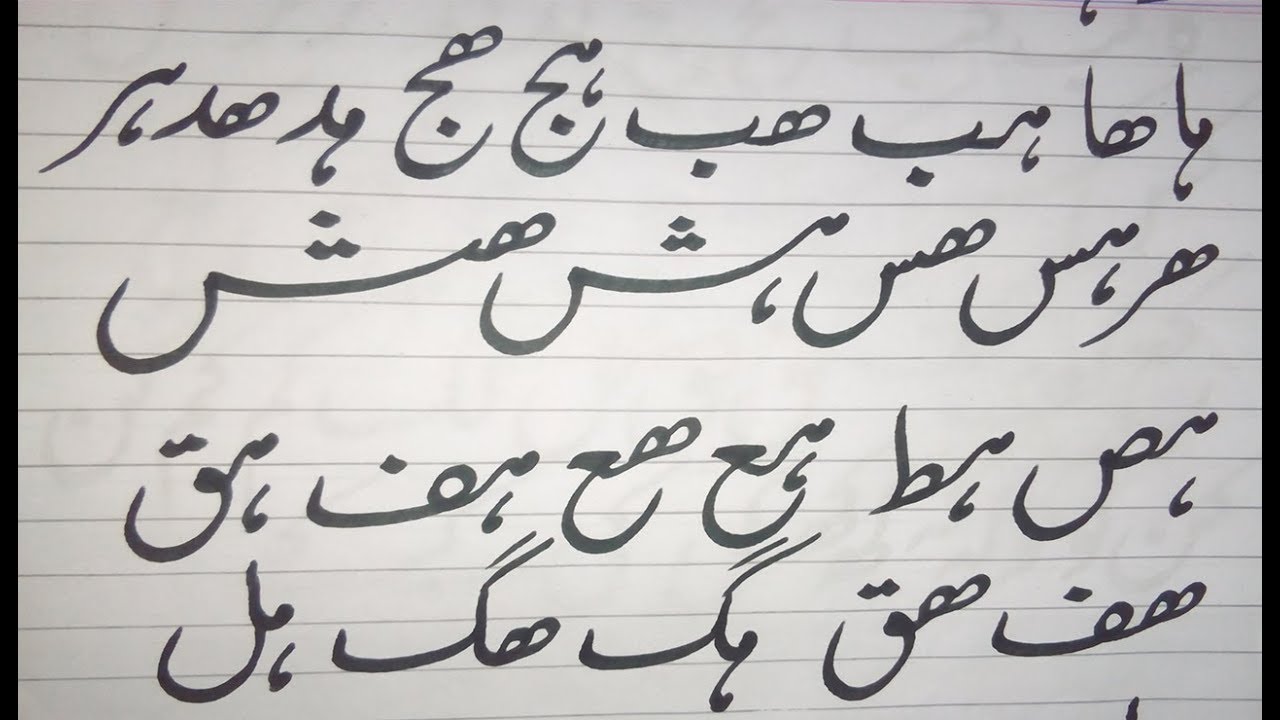 ہا ھا ہب ھب ہج ھج ہد ھد ہر
ھر ہس ھس ہش ھش
ہص ہط ہع ھع ہف ہق
ھف ھق ہگ ھگ ہل